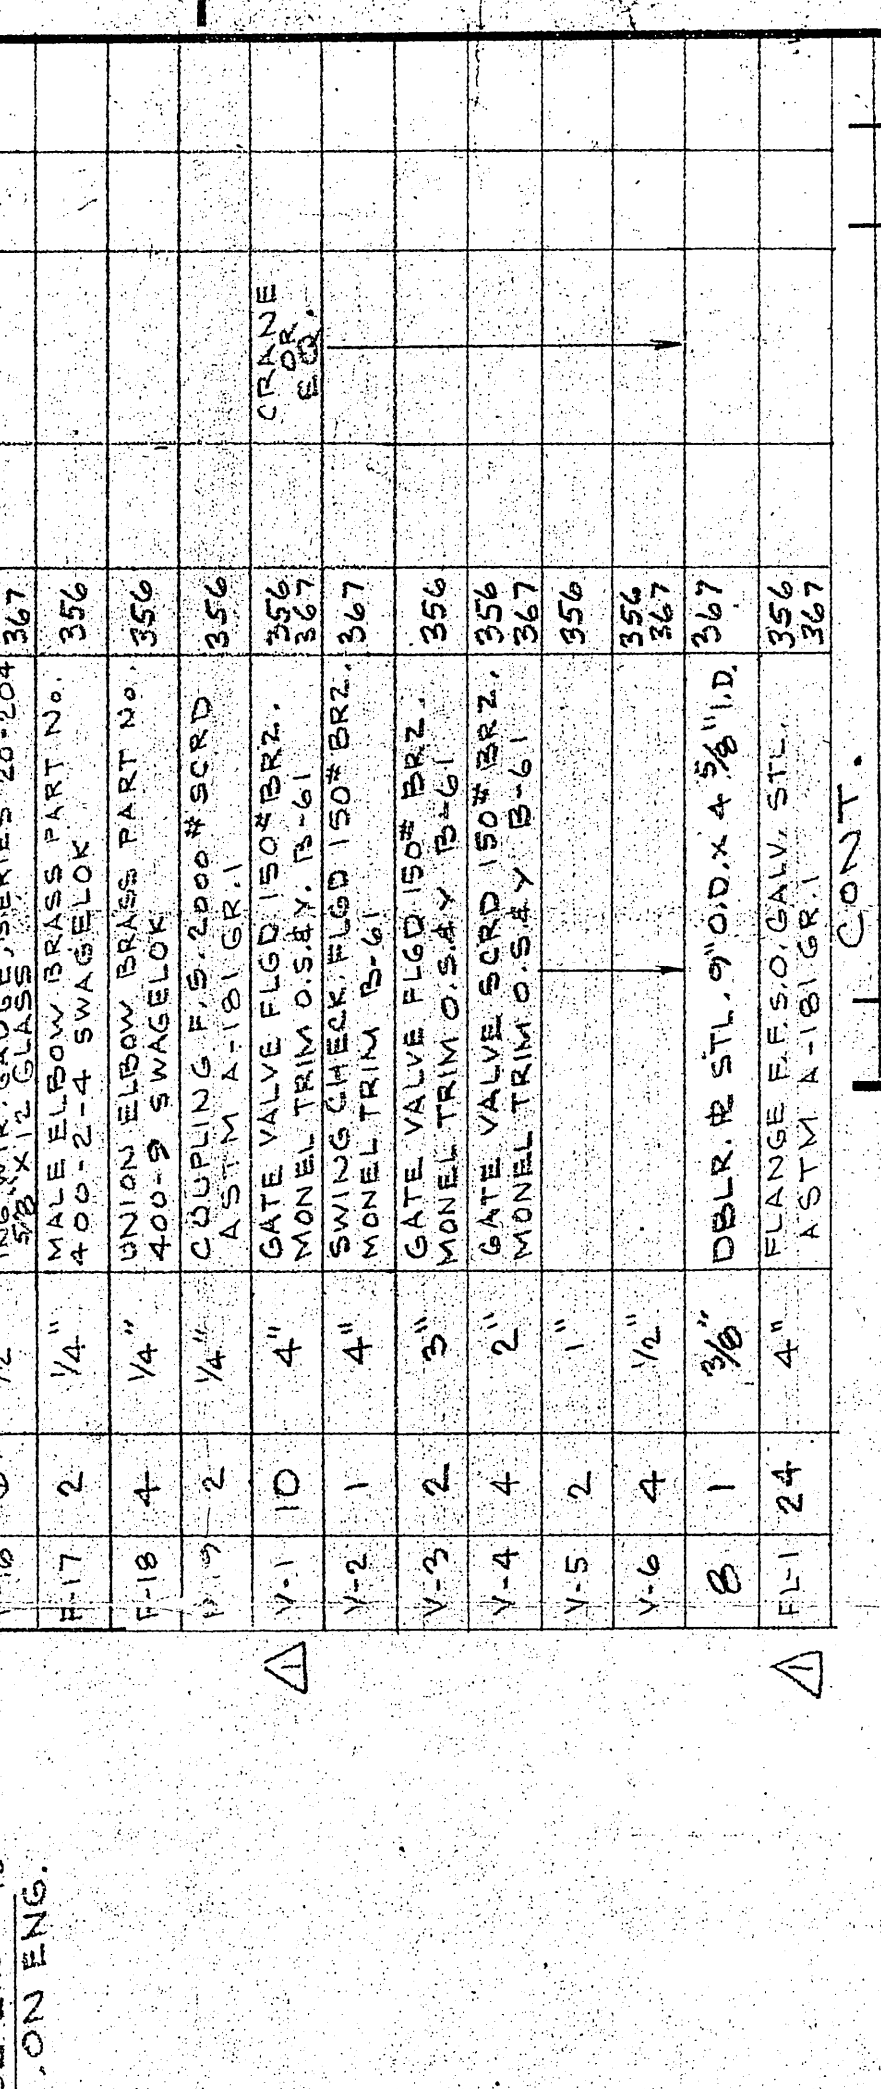 367
5/8" X 12 GLASS
F-17 2 1/4" MALE ELBOW BRASS PART No. 356
400-2-4 SWAGELOK
F-18 4 1/4" UNION ELBOW BRASS PART No. 356
400-9 SWAGELOK
2 1/4" COUPLING F.S. 2000# SCRD 356
ASTM A-181 GR.1
1 V-1 10 4" GATE VALVE FLGD 150# BRZ. 356 CRANE
MONEL TRIM O.S.&Y. B-61 367 OR
EQ.
V-2 1 4" SWING CHECK, FLGD 150# BRZ. 367
MONEL TRIM B-61
V-3 2 3" GATE VALVE FLGD 150# BRZ. 356
MONEL TRIM O.S.&Y B-61
V-4 4 2" GATE VALVE SCRD 150# BRZ. 356
MONEL TRIM O.S.&Y B-61 367
V-5 2 1" 356
V-6 4 1/2" 356
367
8 1 3/8" DBLR. PL STL. 9" O.D. X 4 5/8" I.D. 367
1 FL-1 24 4" FLANGE F.F.S.O. GALV. STL. 356
ASTM A-181 GR.1 367
CONT.
ON ENG.